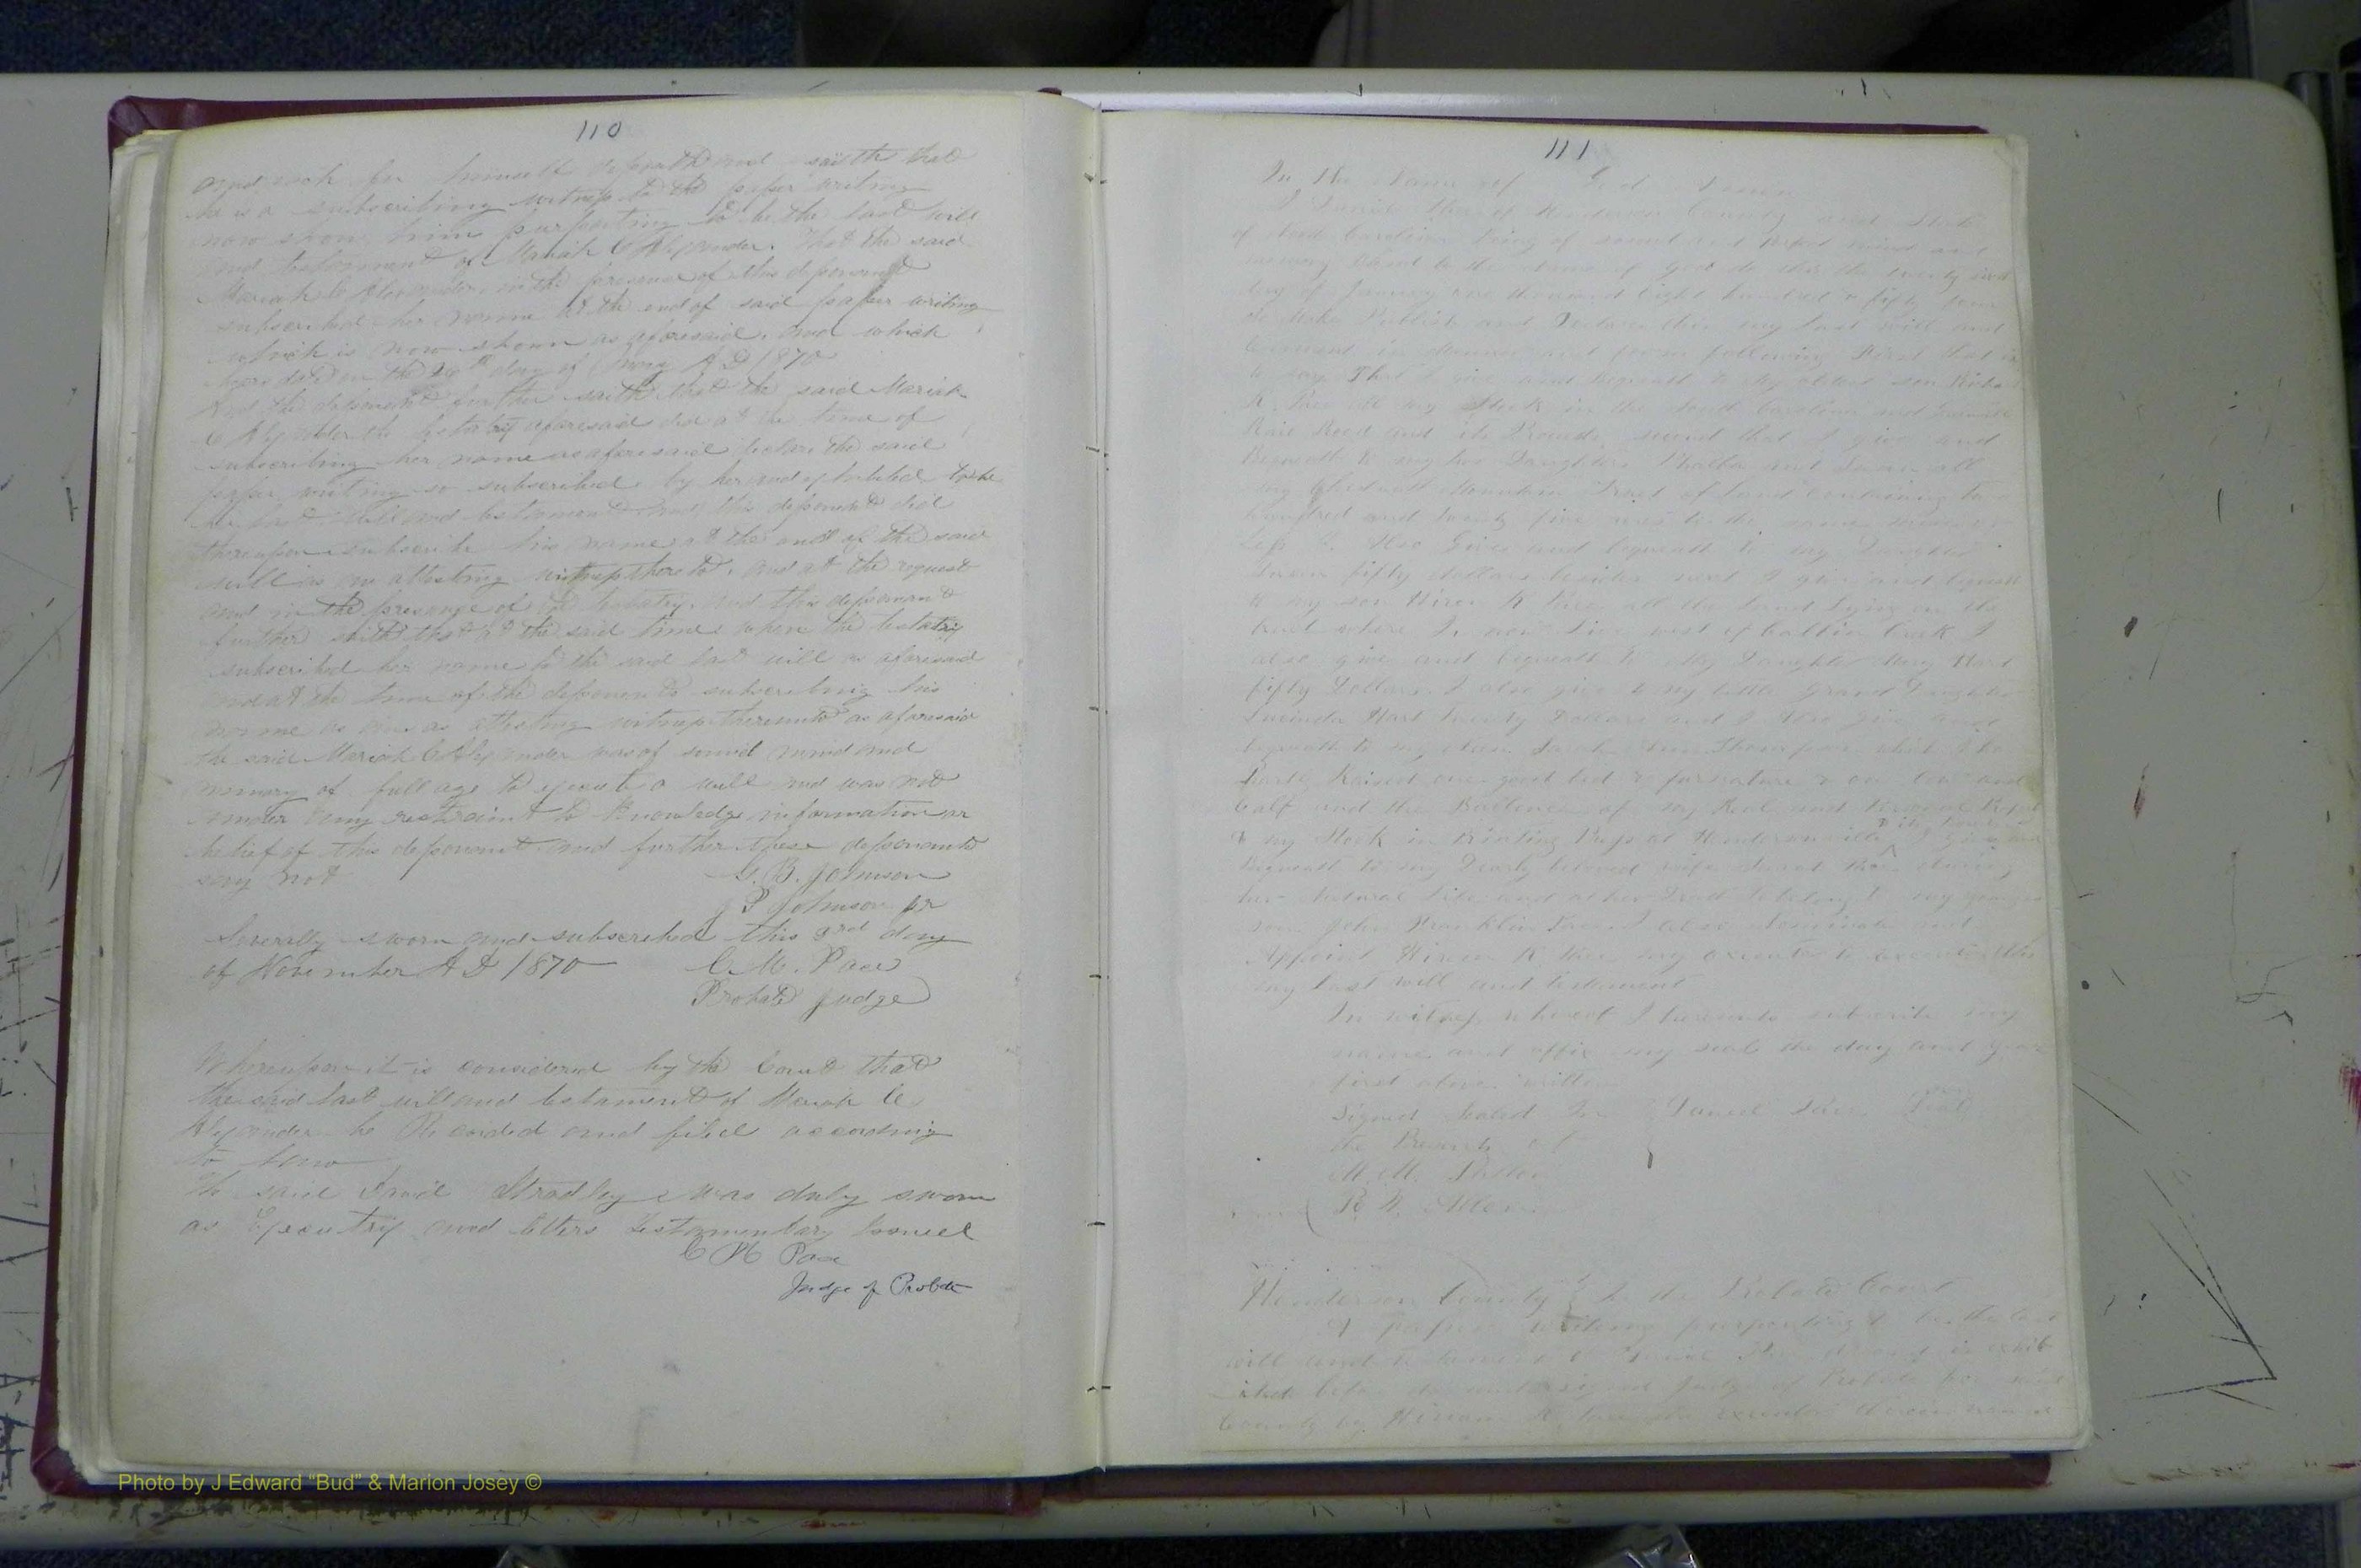 110
and each for himself deposeth and saith that
he is a subscribing witness to the paper writing
now shown him purporting to be the last will
and testament of Mariah C Alexander. That the said
Mariah C Alexander, in the presence of this deponent
subscribed her name at the end of said paper writing
which is now shown as aforesaid, and which
bears date on the day of May A D 1870
And the deponent further saith that the said Mariah
C Alexander the testatrix aforesaid did at the time of
subscribing her name as aforesaid declare the said
paper writing so subscribed by her and exhibited to be
her last will and testament and this deponent did
thereupon subscribe his name at the end of the said
will as an attesting witness thereto, and at the request
and in the presence of the testatrix. and this deponent
further saith that at the said time when the testatrix
subscribed her name to the said last will as aforesaid
and at the time of the deponents subscribing his
name as an attesting witness thereunto as aforesaid
the said Mariah C Alexander was of sound mind and
memory of full age to execute a will and was not
under any restraint to knowledge information or
belief of this deponent and further these deponents
say not
G. B. Johnson
J P Johnson
Severally sworn and subscribed this 3rd day
of November A D 1870
C. M. Pace
Probate Judge
Whereupon it is considered by the Court that
the said last will and testament of Mariah C
Alexander be Recorded and filed according
to law
The said Stradley was duly sworn
as Executrix and letters testamentary issued
C M Pace
Judge of Probate
111
In the Name of God Amen
I Daniel of Henderson County and State
of North Carolina being of sound and mind and
memory thanks to the of God do this the twenty
day of January one thousand eight hundred & fifty four
Make Publish and Declare this my last will and
testament in manner and form following First that is
to say That I give and bequeath to my oldest son
all my Stock in the South Carolina and
Rail Road and its Proceeds second that I give and
Bequeath to my two Daughters and Susan all
my Chestnut Mountain Tract of land containing two
hundred and twenty five acres to the same more or
Less I Also Give and bequeath to my Daughter
Susan fifty dollars besides next I give and bequeath
to my son all the land lying on the
tract where I now live west of Creek I
also give and bequeath to my Daughter Mary Hart
fifty Dollars. I also give to my little Grand Daughter
Lucinda Hart twenty Dollars and I Also give and
bequeath to my Sarah Ann Thompson which I have
Partly Raised one good bed & furnature & one Cow and
Calf and the Ballance of my Real and Personal
& my Stock in Printing Press at Hendersonville I give and
Bequeath to my Dearly beloved wife during
her Natural Life and at her Death to belong to my younger
son John Franklin I also Nominate and
Appoint my executor to execute this
my last will and testament
In witness whereof I hereunto subscribe my
name and affix my seal the day and year
first above written
Signed Sealed In Daniel Seal
the Presence of
M. M.
R. Allen
Henderson County In the Probate Court
A paper writing purporting to be the last
will and testament of is exhib
ited before the undersigned Judge of Probate for said
County by the executor therein named
Photo by J Edward "Bud" & Marion Josey ©